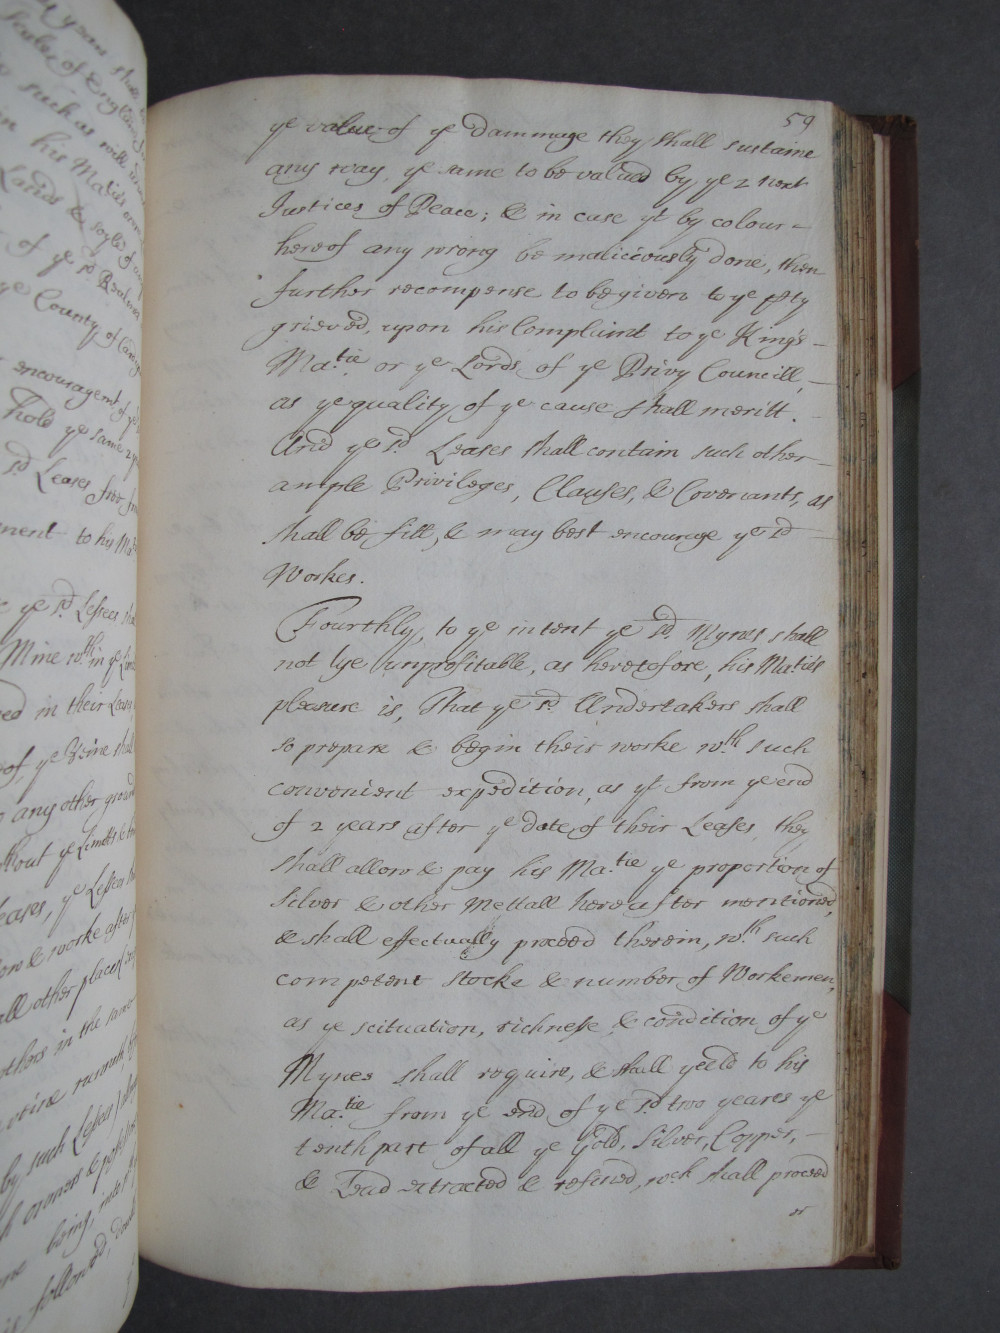 59
ye value of ye Dammage they shall sustaine
any way, ye same to be valued by ye 2 next
Justices of Peace; & in case yt by colour
hereof any wrong be maliciously done, then
further recompense to be given to ye pty
grieved, upon his Complaint to ye King's
Ma.tie or ye Lords of ye Privy Councill,
as ye quality of ye cause shall meritt.
And ye sd. Leases shall contain such other
ample Privileges, Clauses, & Covenants, as
shall be fitt, & may best encourage ye sd
Workes.
Fourthly, to ye intent ye sd. Mynes shall
not lye unprofitable, as heretofore, his Ma.ties
pleasure is, That ye sd. Undertakers shall
so prepare & begin their worke w.th such
convenient expedition, as yt from ye end
of 2 years after ye date of their Leases, they
shall allow & pay his Ma.tie ye proportion of
Silver & other Mettall hereafter mentioned,
& shall effectually proceed therein, w.th such
competent Stocke & number of Workemen,
as ye scituation, richness, & condition of ye
Mynes shall require, & shall yeeld to his
Ma.tie from ye end of ye sd two yeares ye
tenth part of all ye Gold, Silver, Copper,
& Lead extracted & refined, w.ch shall proceed
or
ye County of
encouragemt of ye
hold ye same
sd Leases, free from
ment to his Ma
ye sd. Lessees sha
Mine w.th in ye
in their Lease
of, ye Veine shall
any other ground
out ye Limitts &
eases, ye Lessees
& worke after
all other places
others in the
by such Lessees
owners &
being, into
followed,